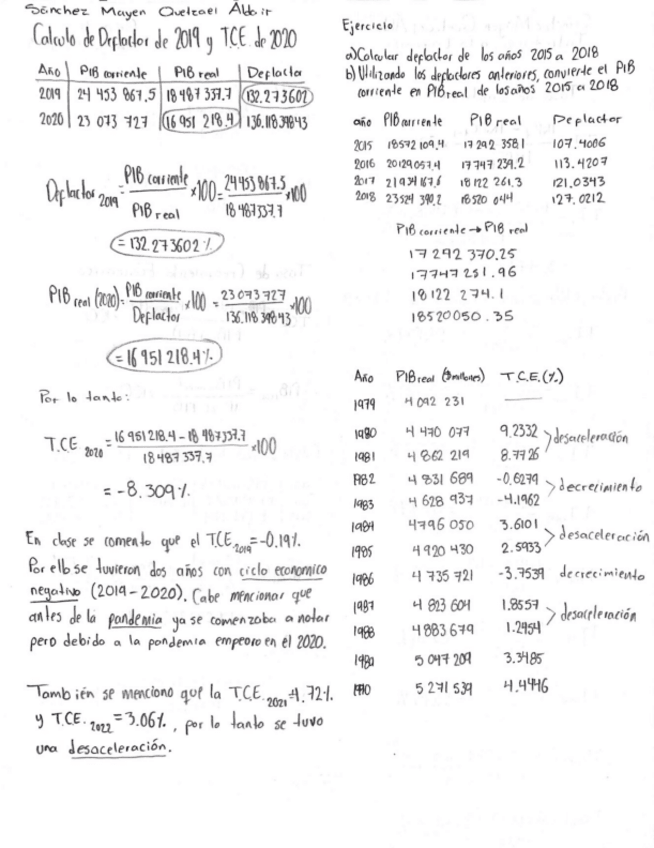 Sánchez Mayen Quetzael Aldair
Calculo de Deflactor de 2019 y TCE de 2020
Año PIB corriente PIB real Deflactor
2019 24 453 867.5 18 487 337.7 132.273602
2020 23 073 727 16 951 218.4 136.11839843
Deflactor 2019 = PIB corriente / PIB real x100 = 24453867.5 / 18 487337.7 x100
= 132.273602 %
PIB real (2020) = PIB corriente / Deflactor x100 = 23 073 727 / 136.11839843 x100
= 16 951 218.4 %
Por lo tanto:
T.C.E 2020 = 16 951 218.4 - 18 487 337.7 / 18 487 337.7 x100
= -8.309 %
En clase se comento que el T.C.E 2019 = -0.19%.
Por ello se tuvieron dos años con ciclo economico
negativo (2019-2020). Cabe mencionar que
antes de la pandemia ya se comenzaba a notar
pero debido a la pandemia empeoro en el 2020.
También se menciono que la T.C.E. 2021 = 4.72%
y T.C.E. 2022 = 3.06%, por lo tanto se tuvo
una desaceleración.
Ejercicio
a) Calcular deflactor de los años 2015 a 2018
b) Utilizando los deflactores anteriores, convierte el PIB
corriente en PIB real de los años 2015 a 2018
año PIB corriente PIB real Deflactor
2015 18572 109.4 17 292 358.1 107.4006
2016 20129 057.4 17 747 239.2 113.4207
2017 21 934 167.6 18 122 261.3 121.0343
2018 23 524 390.2 18 520 044 127.0212
PIB corriente → PIB real
17 292 370.25
17747 251.96
18 122 274.1
18520050.35
Año PIB real ($ millones) T.C.E. (%)
1979 4 092 231 ——
1980 4 470 077 9.2332
1981 4 862 219 8.7726 > desaceleración
1982 4 831 689 -0.6279
1983 4 628 937 -4.1962 > decrecimiento
1984 4796 050 3.6101
1985 4 920 430 2.5933 > desaceleración
1986 4 735 721 -3.7539 decrecimiento
1987 4 823 604 1.8557
1988 4 883 679 1.2454 > desaceleración
1989 5 047 209 3.3485
1990 5 271 539 4.4446